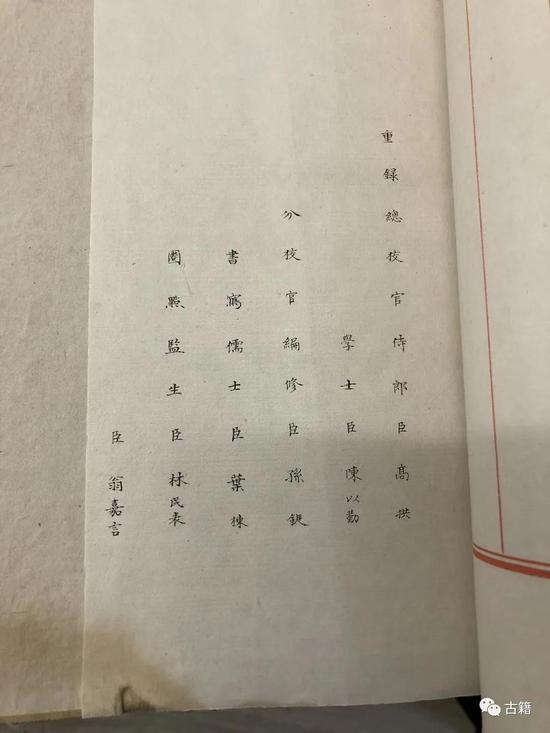 重錄總校官侍郎臣高拱
學士臣陳以勤
分校官編修臣孫鋌
書寫儒士臣葉棟
圈點監生臣林民表
臣翁嘉言
古籍